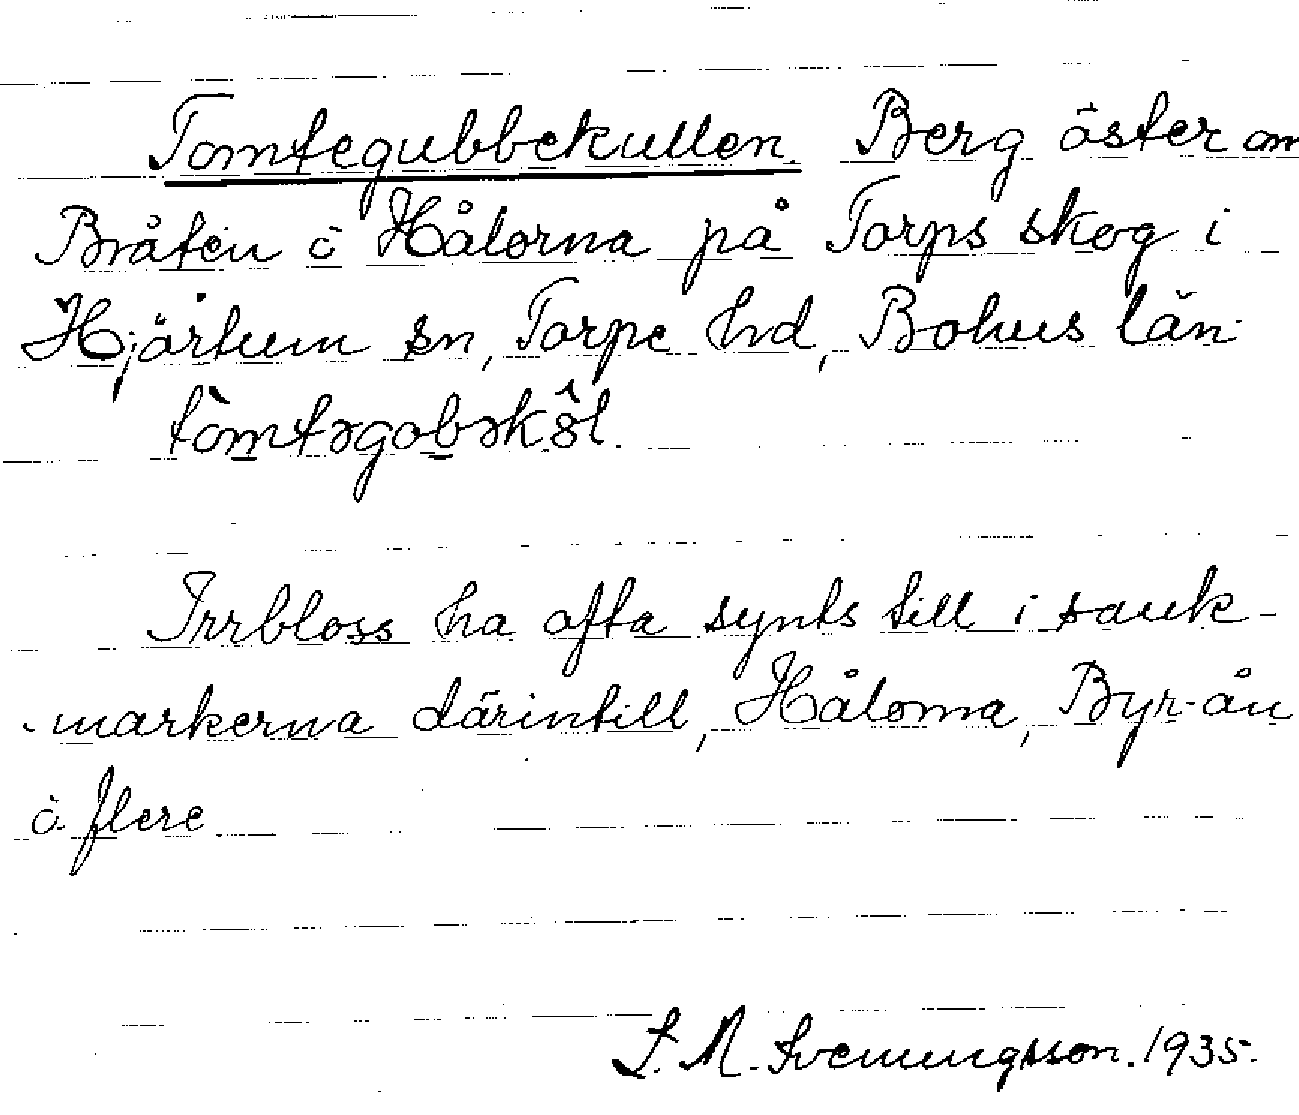 Tomtegubbekullen. Berg öster om
Bråten o Hålorna på Torps skog i
Hjärtum sn, Torpe hd, Bohus län.
tòmtəgobək
Irrbloss ha ofta synts till i sank-
-markerna därintill, Hålorna, Byr-ån
o flere
S. M. Svenungsson. 1935.